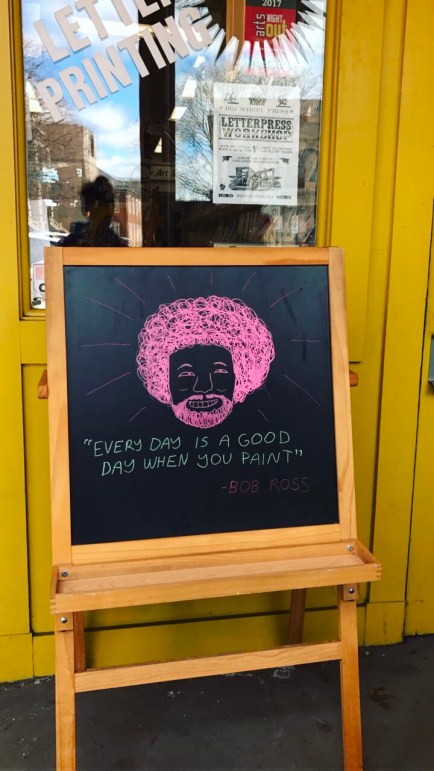 LETTER
PRINTING
2017
arts
NIGHT
OUT
LETTERPRESS
WORKSHOP
"EVERY DAY IS A GOOD
DAY WHEN YOU PAINT"
-BOB ROSS